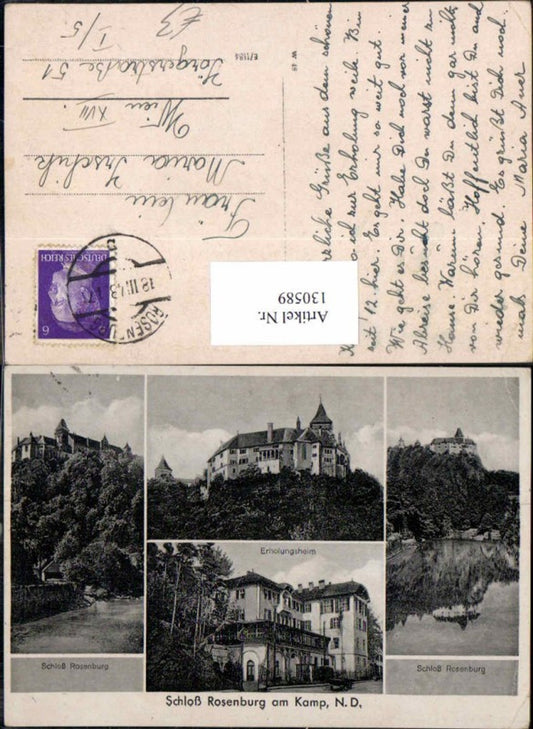 Herzliche Grüße aus dem schönen
wo ich zur Erholung weile. Bin
seit 12. hier. Es geht mir so weit gut.
Wie geht es Dir. Habe Dich noch vor meiner
Abreise besucht doch Du warst nicht zu
Hause. Warum läßt Du denn gar nichts
von Dir hören. Hoffentlich bist Du auch
wieder gesund. Es grüßt Dich noch
mals Deine Maria Auer
W 49
E/1184
Fräulein
Maria Irschik
Wien XVII
Jörgerstraße 51
I/5
DEUTSCHES REICH
6
ROSENBURG
18.III.43
Artikel Nr.
130589
Schloß Rosenburg
Erholungsheim
Schloß Rosenburg
Schloß Rosenburg am Kamp, N.D.